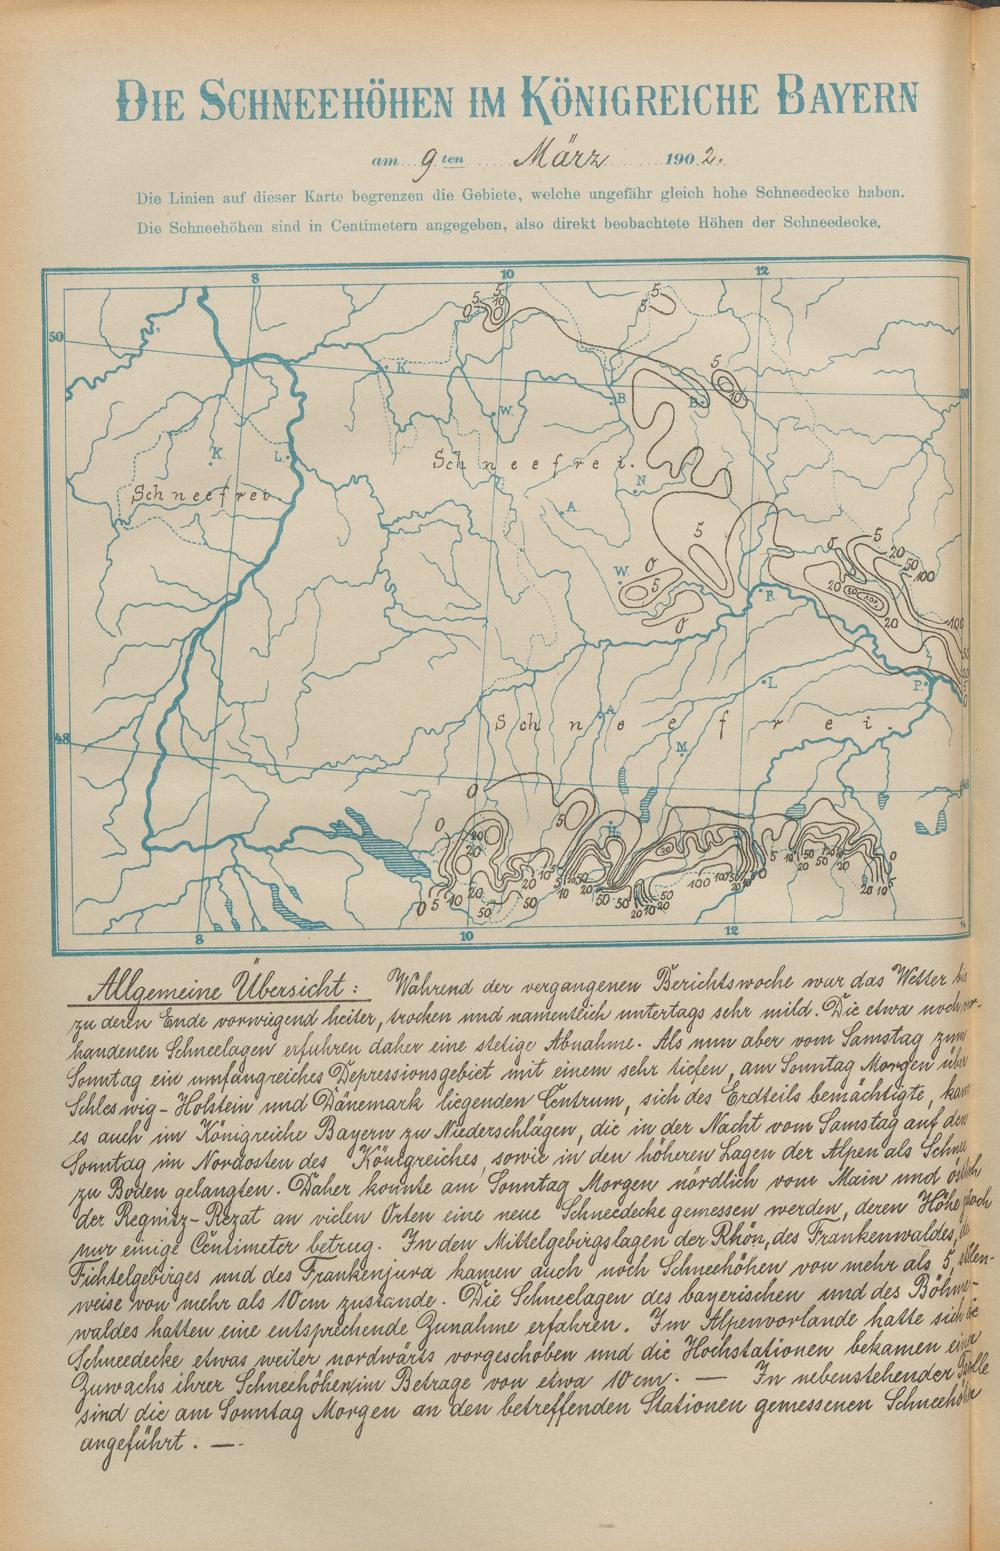 DIE SCHNEEHÖHEN IM KÖNIGREICHE BAYERN
am 9ten März 1902.
Die Linien auf dieser Karte begrenzen die Gebiete, welche ungefähr gleich hohe Schneedecke haben.
Die Schneehöhen sind in Centimetern angegeben, also direkt beobachtete Höhen der Schneedecke.
8 10 12
50
K. W. B B.
Schneefrei.
K. L.
Schneefrei
N
A.
W
R.
Schneefrei.
L. P.
A.
M
48
8 10 12
Allgemeine Übersicht: Während der vergangenen Berichtswoche war das Wetter bis
zu deren Ende vorwiegend heiter, trocken und namentlich untertags sehr mild. Die etwa noch vor-
handenen Schneelagen erfuhren daher eine stetige Abnahme. Als nun aber vom Samstag zum
Sonntag ein umfangreiches Depressionsgebiet mit einem sehr tiefen, am Sonntag Morgen über
Schleswig-Holstein und Dänemark liegenden Centrum, sich des Erdteils bemächtigte, kam
es auch im Königreiche Bayern zu Niederschlägen, die in der Nacht vom Samstag auf den
Sonntag im Nordosten des Königreiches, sowie in den höheren Lagen der Alpen als Schnee
zu Boden gelangten. Daher konnte am Sonntag Morgen nördlich vom Main und östlich
der Regnitz-Rezat an vielen Orten eine neue Schneedecke gemessen werden, deren Höhe jedoch
nur einige Centimeter betrug. In den Mittelgebirgslagen der Rhön, des Frankenwaldes, des
Fichtelgebirges und des Frankenjura kamen auch noch Schneehöhen von mehr als 5, stellen-
weise von mehr als 10 cm zustande. Die Schneelagen des bayerischen und des Böhmer-
waldes hatten eine entsprechende Zunahme erfahren. Im Alpenvorlande hatte sich die
Schneedecke etwas weiter nordwärts vorgeschoben und die Hochstationen bekamen einen
Zuwachs ihrer Schneehöhen im Betrage von etwa 10 cm. — In nebenstehender Tabelle
sind die am Sonntag Morgen an den betreffenden Stationen gemessenen Schneehöhen
angeführt. —.